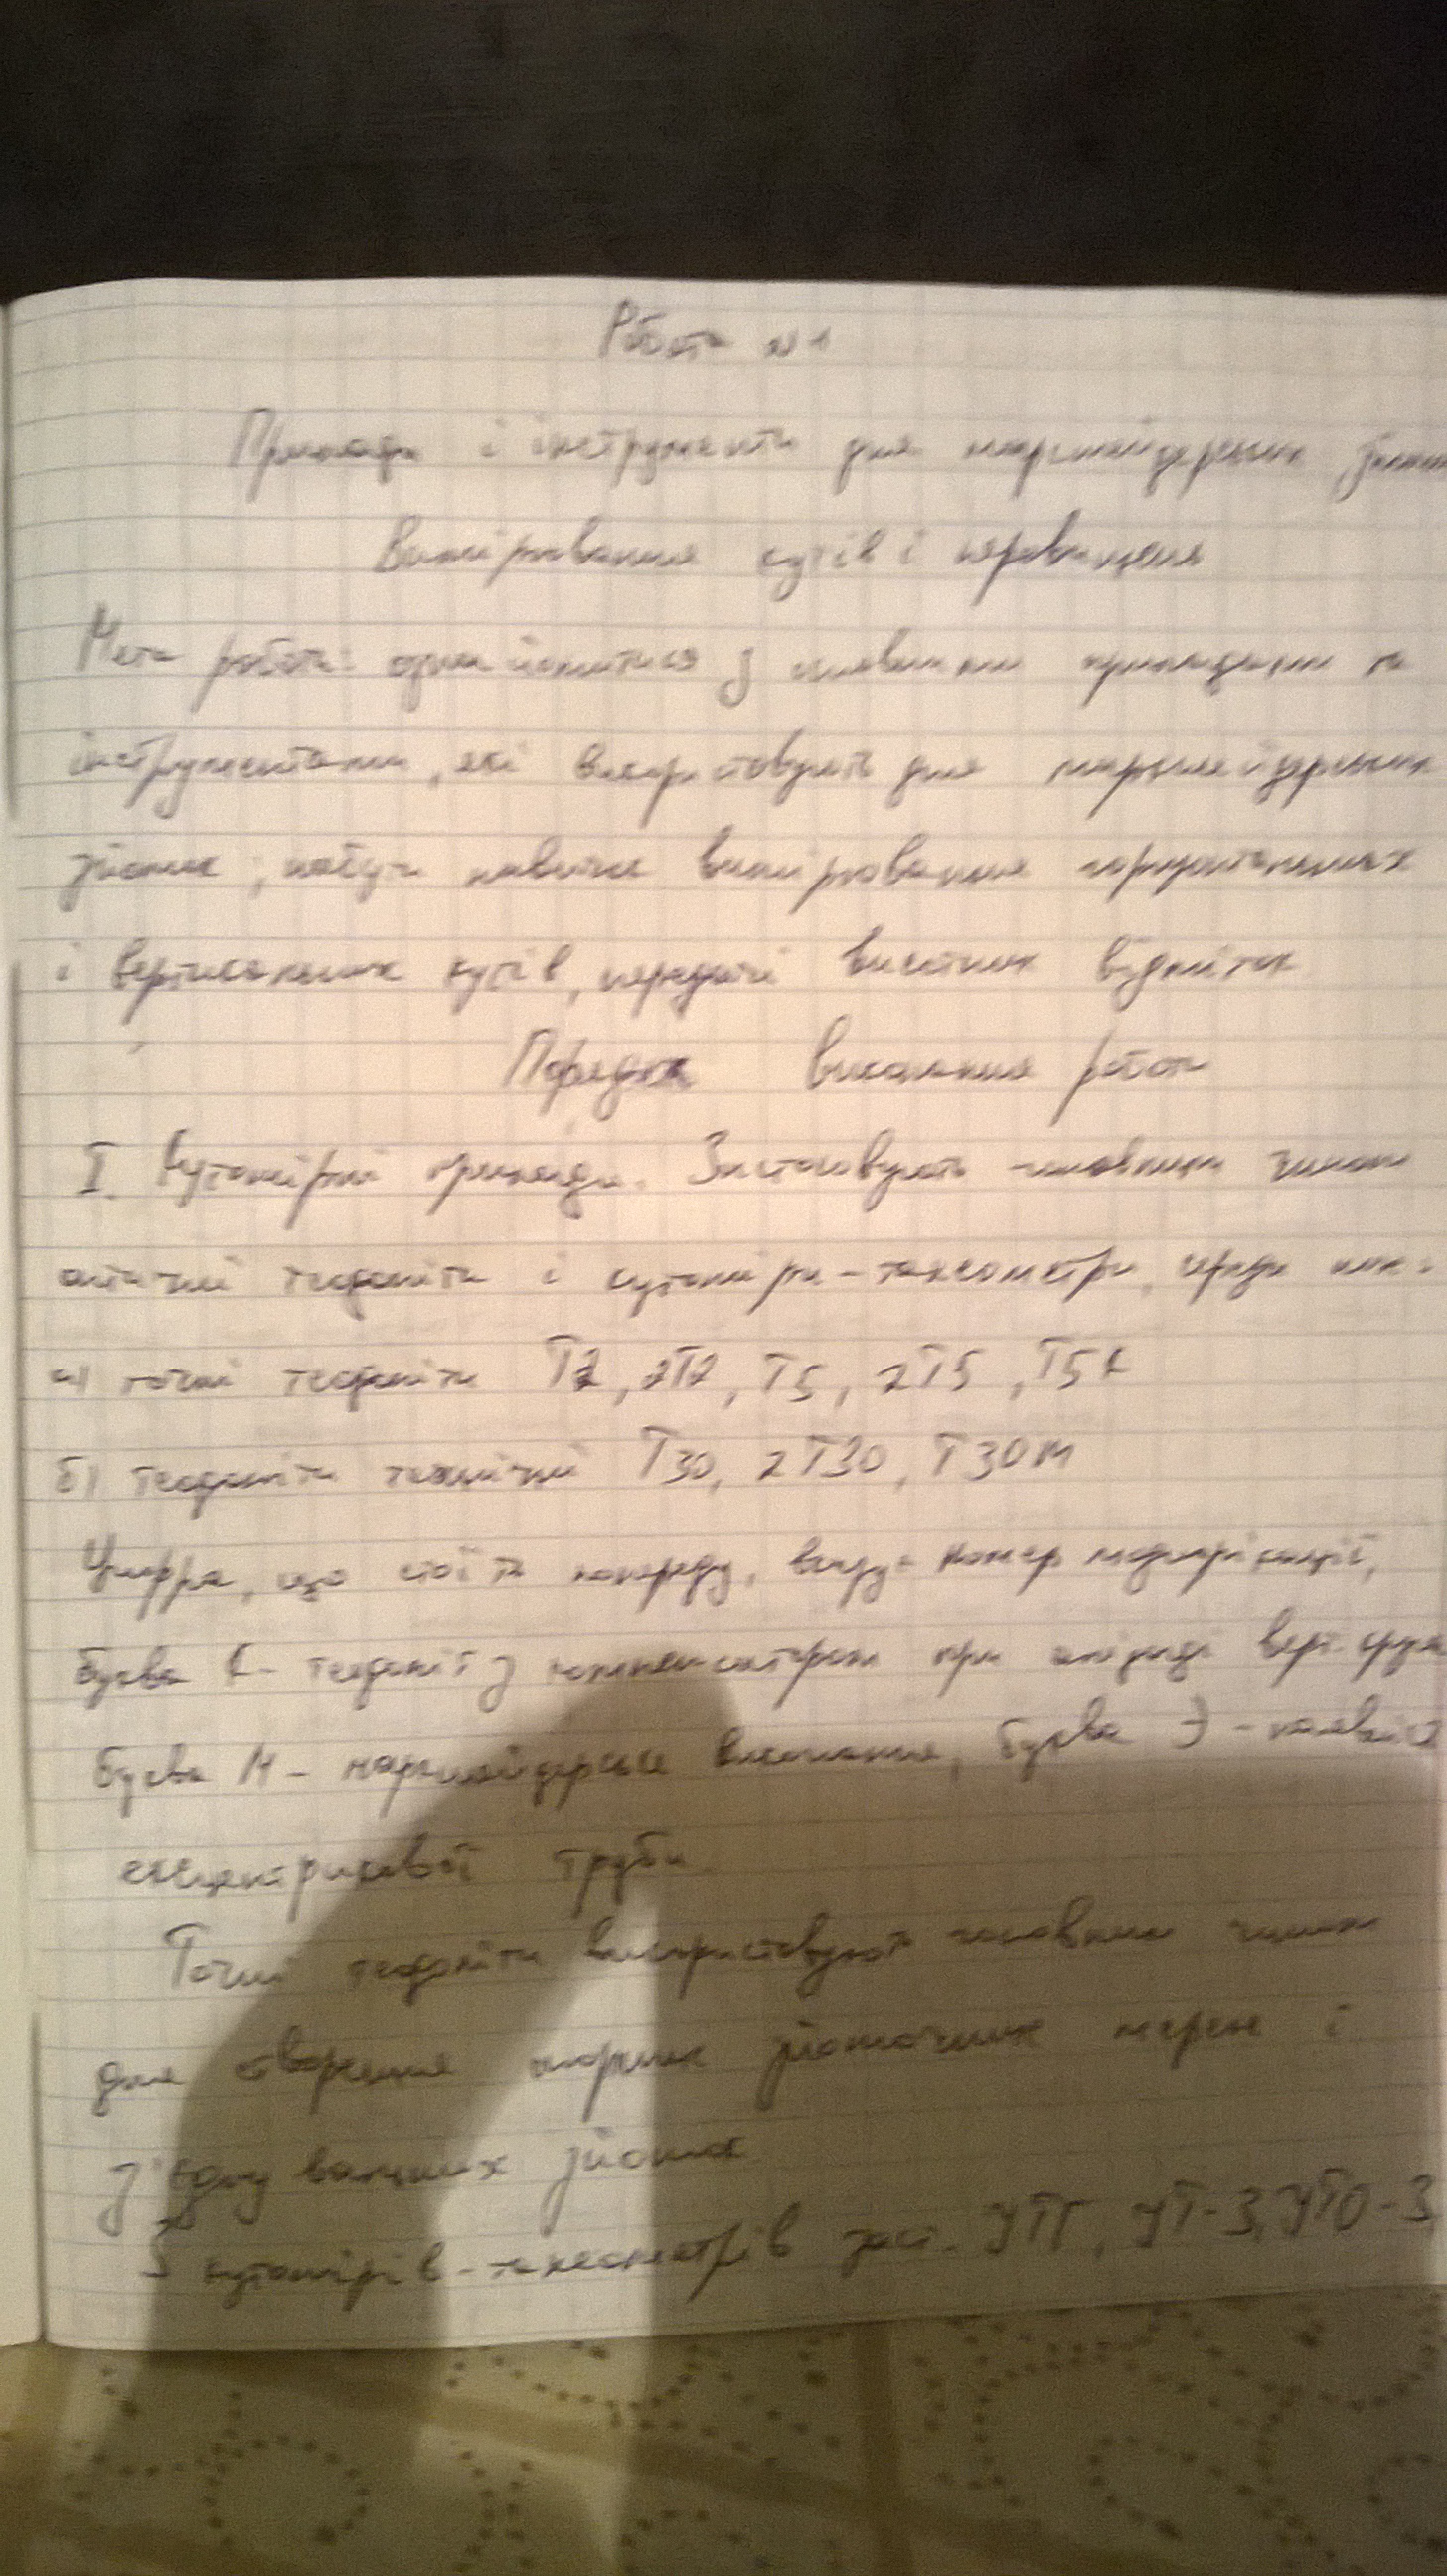 Робота №1
Прилади і інструменти для маркшейдерських зйомок
Вимірювання кутів і перевищень
Мета роботи: ознайомитися з основними приладами та
інструментами, які використовують для маркшейдерських
зйомок, набути навички вимірювання горизонтальних
і вертикальних кутів, передачі висотних відміток
Порядок виконання роботи
I. Кутомірні прилади. Застосовують головним чином
оптичні теодоліти і кутоміри-тахеометри, серед них:
а) точні теодоліти Т2, 2Т2, Т5, 2Т5, Т5К
б) теодоліти технічні Т30, 2Т30, Т30М
Цифра, що стоїть попереду, вказує номер модифікації,
буква К - теодоліт з компенсатором при алідаді верт. круга
буква М - маркшейдерське виконання, буква Э - наявність
ексцентрикової труби.
Точні теодоліти використовують головним чином
для створення опорних зйомочних мереж і
з'єднувальних зйомок
З кутомірів-тахеометрів заст. УТГ, УТ-3, УТО-3